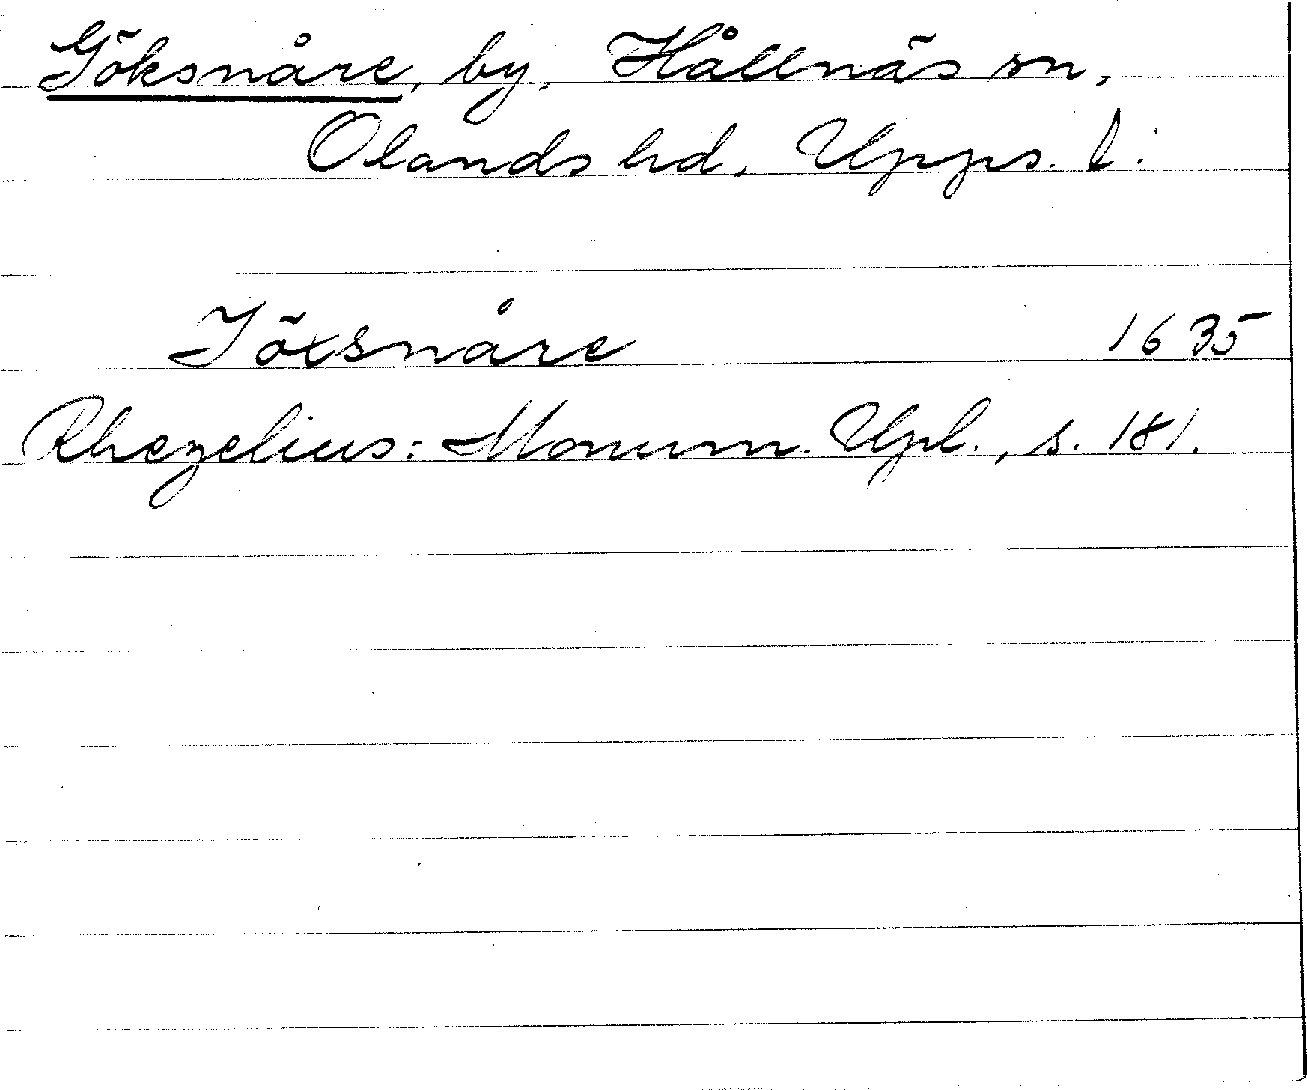 Göksnåre, by, Hållnäs sn,
Olands hd, Upps. l.
Jöxsnåre 1635
Rhezelius: Monum. Upl., s. 181.